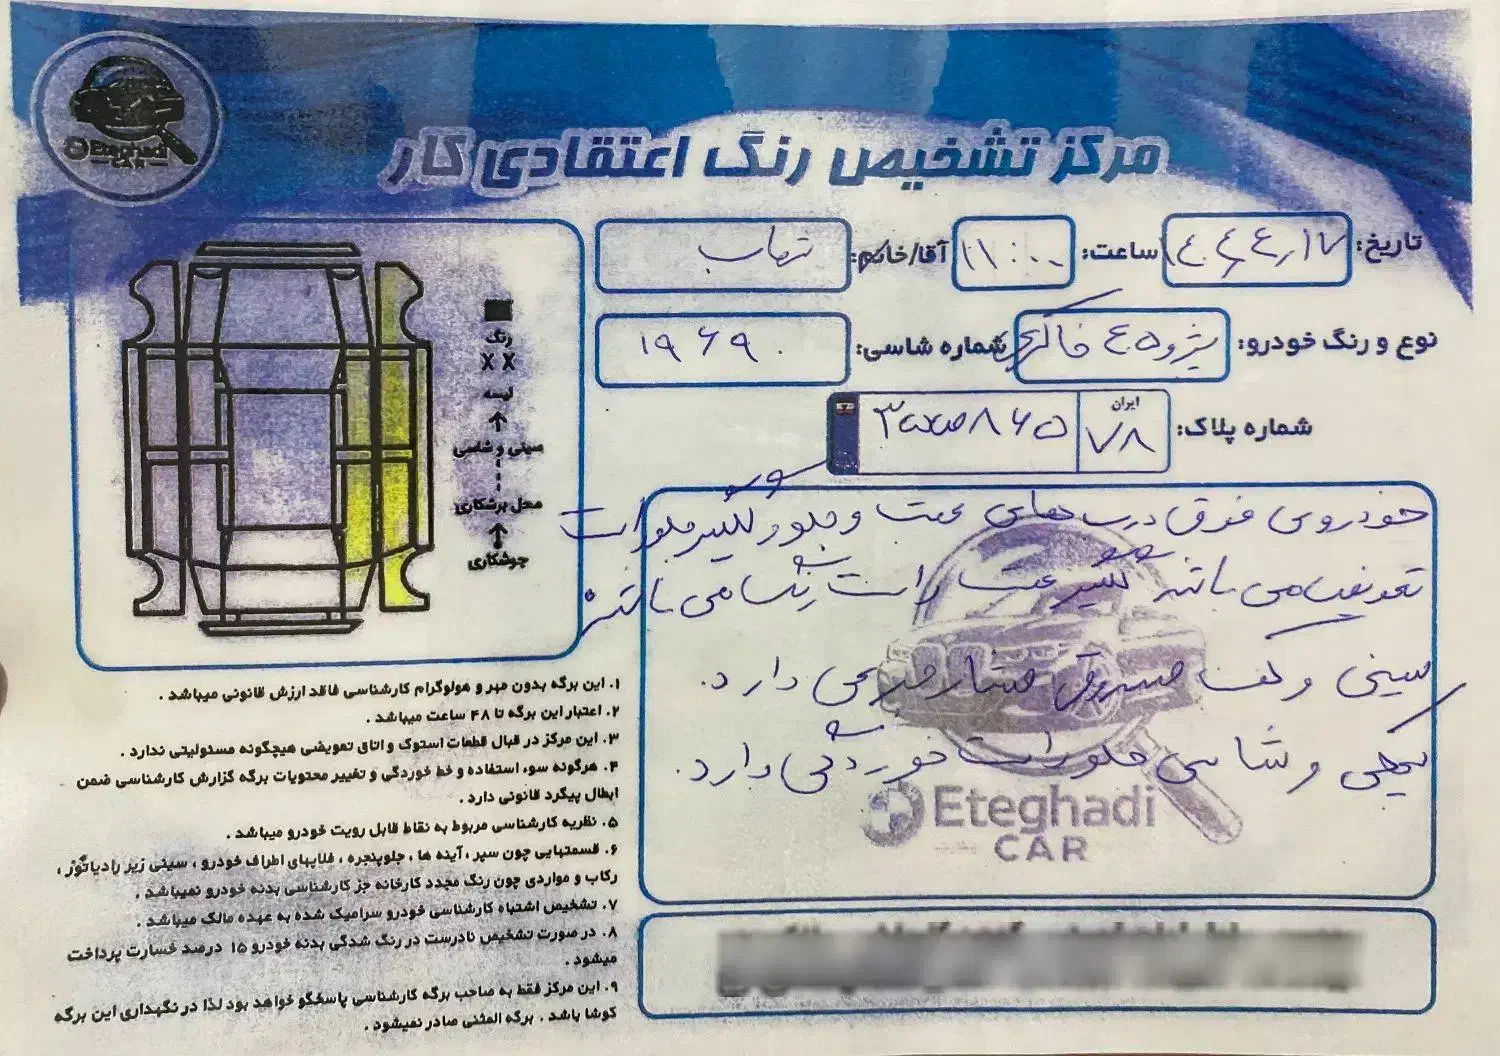 Eteghadi
CAR
مرکز تشخیص رنگ اعتقادی کار
تاریخ: ۱۴۰۴,۴,۱۷ ساعت: ۱۱:۰۰ آقا/خانم:
نوع و رنگ خودرو: پژو ۴۰۵ خاکستری شماره شاسی: ۱۹۶۹۰
شماره پلاک: ایران ۷۸
رنگ
X X
لیسه
سینی و شاسی
محل برشکاری
جوشکاری
خودروی فوق درب های عقب و جلو و گلگیر جلو راست
تعویض می باشد گلگیر عقب راست رنگ می باشد
سینی و کف صندوق فشار جزیی دارد.
پیچی و شاسی جلو راست خوردگی دارد.
Eteghadi
CAR
۱. این برگه بدون مهر و هولوگرام کارشناسی فاقد ارزش قانونی میباشد .
۲. اعتبار این برگه تا ۴۸ ساعت میباشد .
۳. این مرکز در قبال قطعات استوک و اتاق تعویضی هیچگونه مسئولیتی ندارد .
۴. هرگونه سوء استفاده و خط خوردگی و تغییر محتویات برگه گزارش کارشناسی ضمن
ابطال پیگرد قانونی دارد .
۵. نظریه کارشناسی مربوط به نقاط قابل رویت خودرو میباشد .
۶. قسمتهایی چون سپر ، آینه ها ، جلوپنجره ، فلاپهای اطراف خودرو ، سینی زیر رادیاتور ،
رکاب و مواردی چون رنگ مجدد کارخانه جز کارشناسی بدنه خودرو نمیباشد .
۷. تشخیص اشتباه کارشناسی خودرو سرامیک شده به عهده مالک میباشد .
۸. در صورت تشخیص نادرست در رنگ شدگی بدنه خودرو ۱۵ درصد خسارت پرداخت
میشود .
۹. این مرکز فقط به صاحب برگه کارشناسی پاسخگو خواهد بود لذا در نگهداری این برگه
کوشا باشد . برگه المثنی صادر نمیشود .